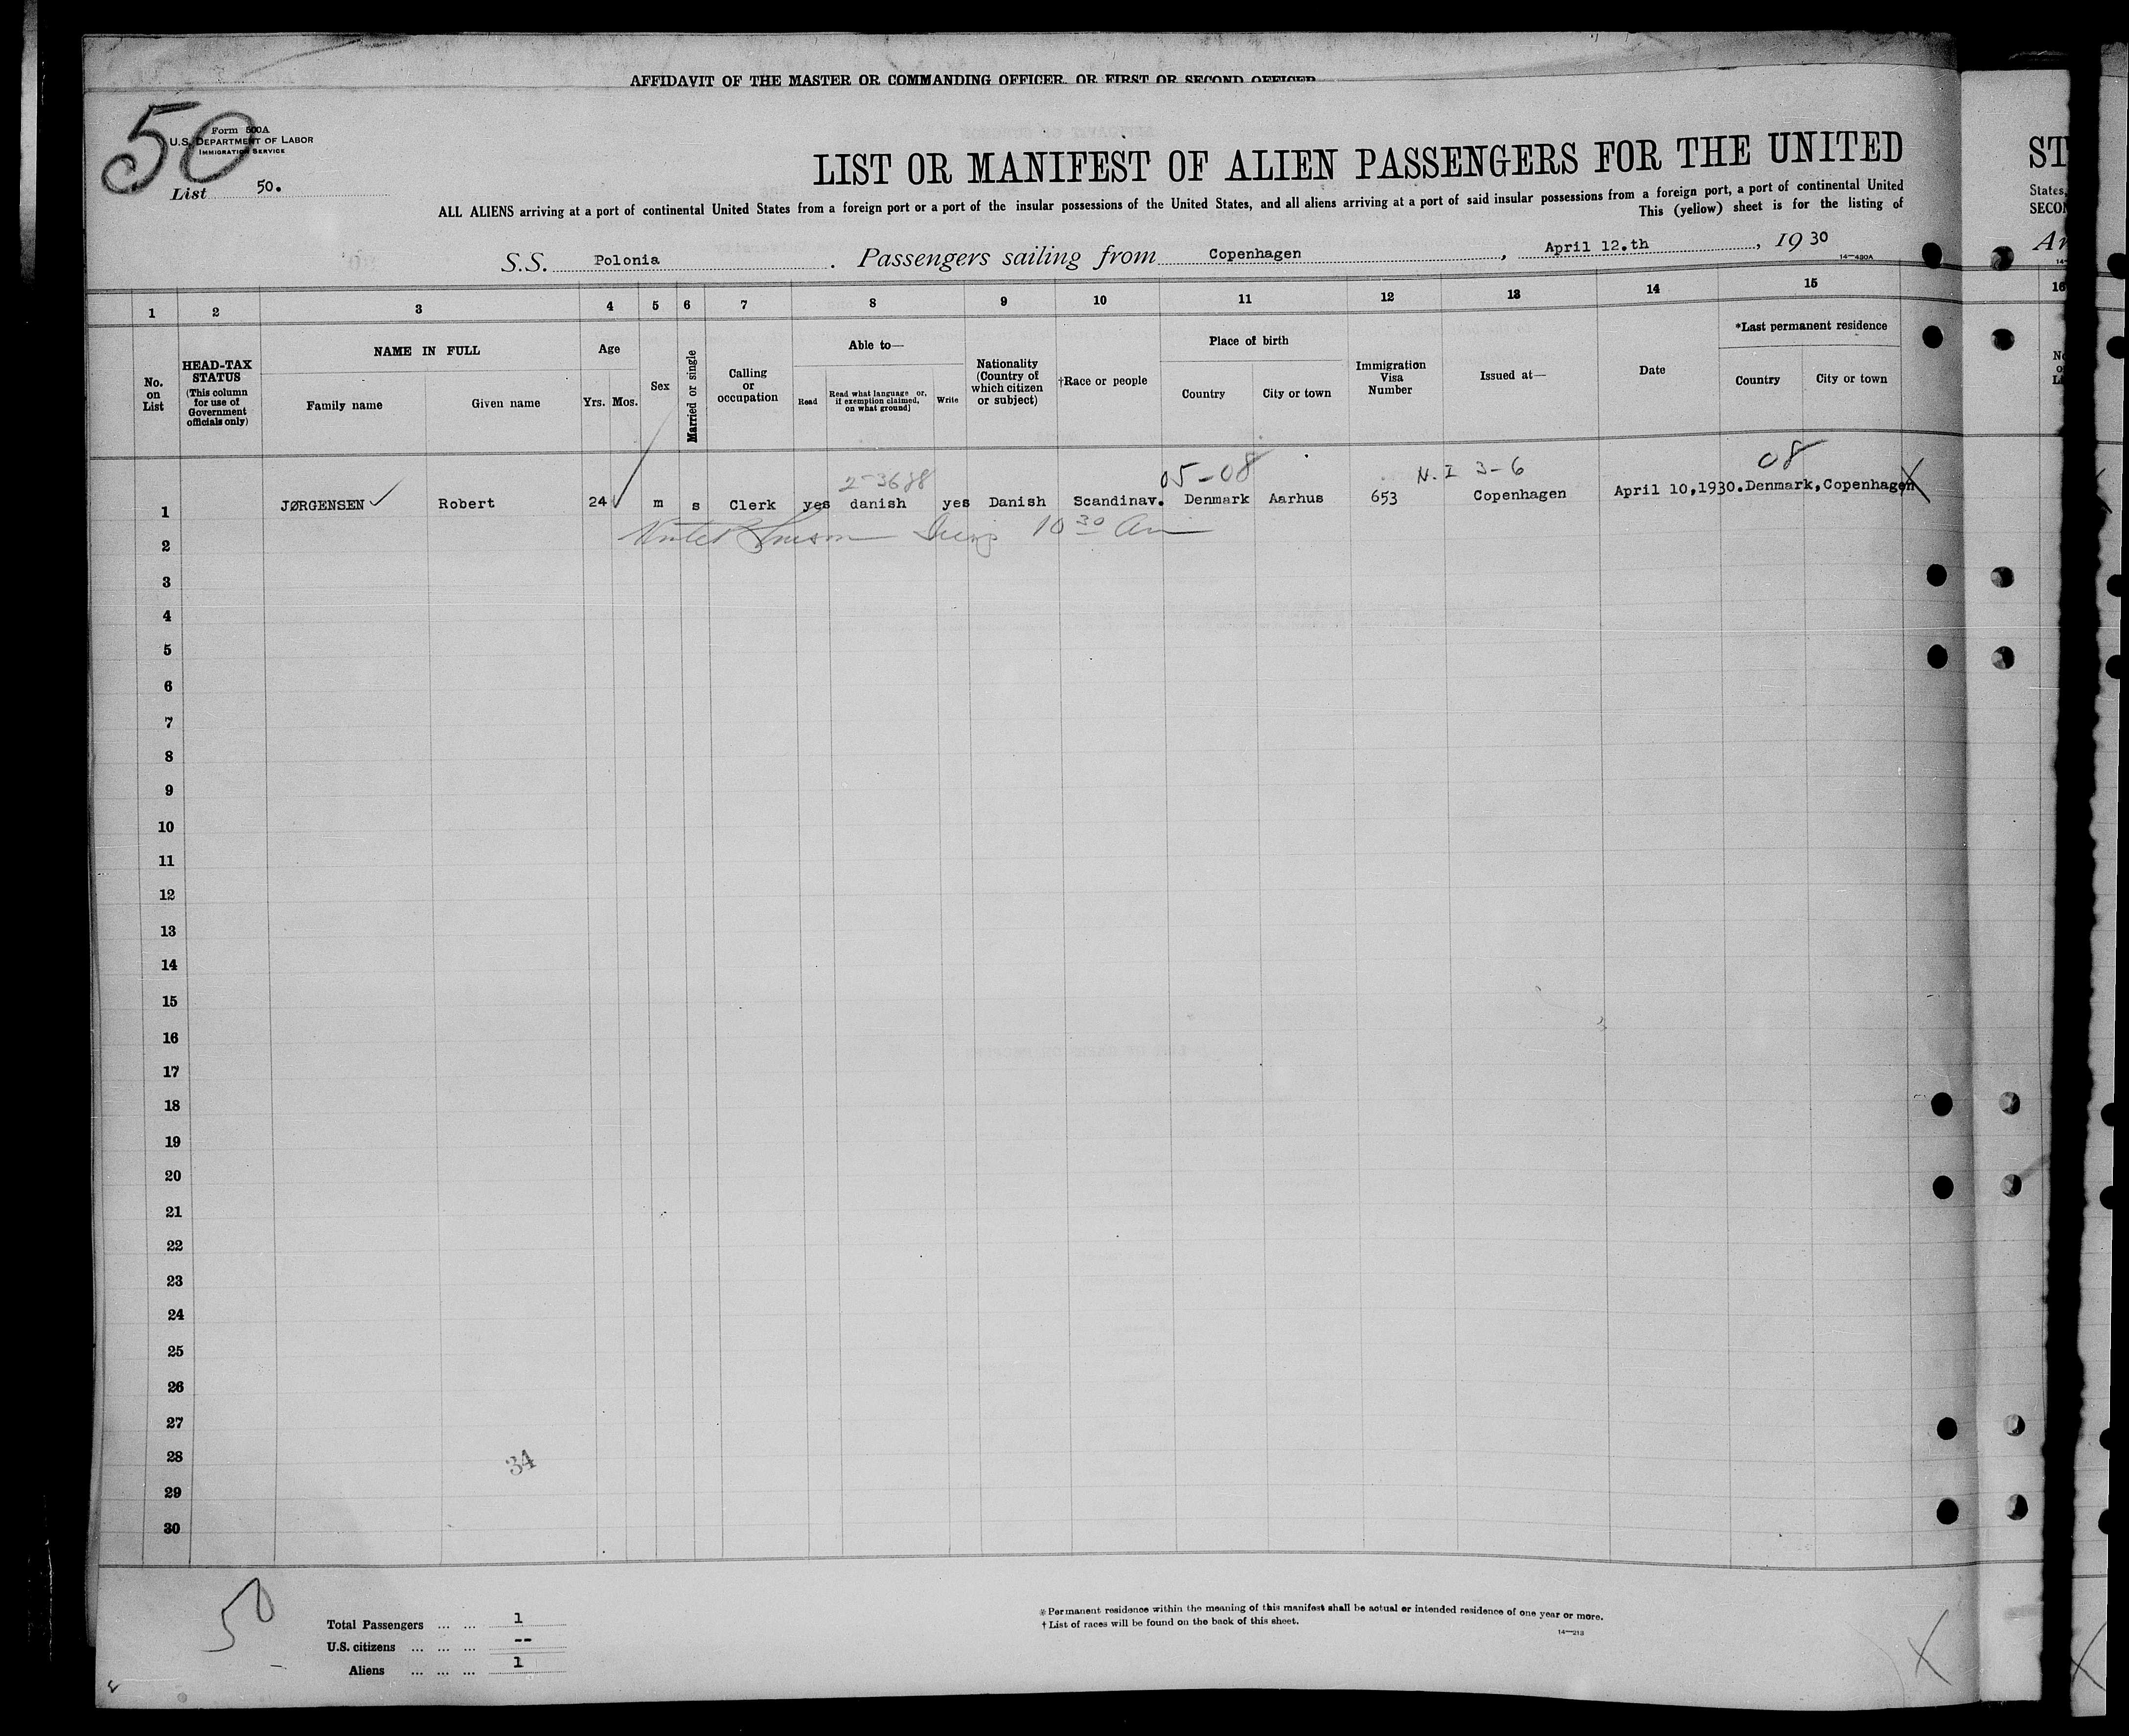 AFFIDAVIT OF THE MASTER OR COMMANDING OFFICER, OR FIRST OR SECOND OFFICER
50
Form 500A
U.S. DEPARTMENT OF LABOR
IMMIGRATION SERVICE
List 50.
LIST OR MANIFEST OF ALIEN PASSENGERS FOR THE UNITED
ST
ALL ALIENS arriving at a port of continental United States from a foreign port or a port of the insular possessions of the United States, and all aliens arriving at a port of said insular possessions from a foreign port, a port of continental United
States,
This (yellow) sheet is for the listing of
SECON
S.S. Polonia. Passengers sailing from Copenhagen, April 12.th, 1930
Ar
14—430A
1 2 3 4 5 6 7 8 9 10 11 12 13 14 15 16
No. on List
HEAD-TAX STATUS
(This column for use of Government officials only)
NAME IN FULL
Family name
Given name
Age
Yrs. Mos.
Sex
Married or single
Calling or occupation
Able to—
Read
Read what language or, if exemption claimed, on what ground)
Write
Nationality (Country of which citizen or subject)
†Race or people
Place of birth
Country
City or town
Immigration Visa Number
Issued at—
Date
*Last permanent residence
Country
City or town
2-3688 05-08 N.I 3-6 08
1 JØRGENSEN Robert 24 m s Clerk yes danish yes Danish Scandinav. Denmark Aarhus 653 Copenhagen April 10,1930. Denmark, Copenhagen
10 30
2
3
4
5
6
7
8
9
10
11
12
13
14
15
16
17
18
19
20
21
22
23
24
25
26
27
28
34
29
30
50
Total Passengers ... ... 1
U.S. citizens ... ... ... --
Aliens ... ... ... 1
* Permanent residence within the meaning of this manifest shall be actual or intended residence of one year or more.
† List of races will be found on the back of this sheet.
14—213